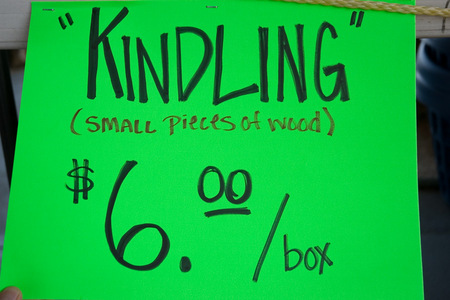 "KINDLING"
(SMALL Pieces of wood)
$6.00/box